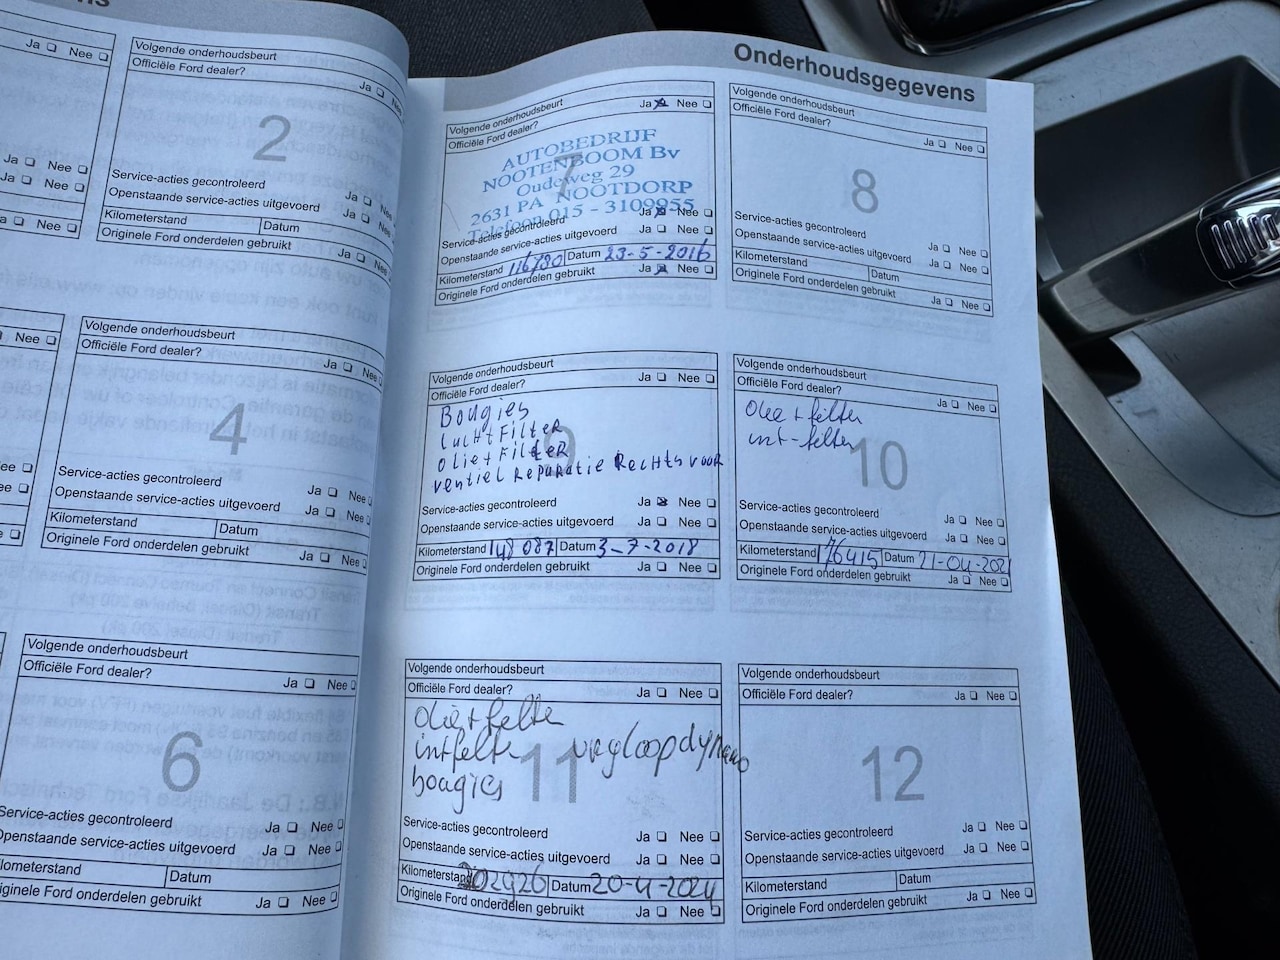 ns
Ja ❏ Nee ❏
Ja ❏ Nee ❏
Ja ❏ Nee ❏
Ja ❏ Nee ❏
Volgende onderhoudsbeurt
Officiële Ford dealer?
Ja ❏ Nee
2
Service-acties gecontroleerd
Ja ❏ Nee
Openstaande service-acties uitgevoerd
Ja ❏ Nee
Kilometerstand Datum
Originele Ford onderdelen gebruikt
Ja ❏ Nee
Nee ❏
Volgende onderhoudsbeurt
Officiële Ford dealer?
Ja ❏ Nee ❏
4
Service-acties gecontroleerd
Ja ❏ Nee ❏
Openstaande service-acties uitgevoerd
Ja ❏ Nee ❏
Kilometerstand Datum
Originele Ford onderdelen gebruikt
Ja ❏ Nee ❏
Nee ❏
Nee ❏
Nee ❏
Volgende onderhoudsbeurt
Officiële Ford dealer?
Ja ❏ Nee ❏
6
Service-acties gecontroleerd
Ja ❏ Nee ❏
Openstaande service-acties uitgevoerd
Ja ❏ Nee ❏
ilometerstand Datum
iginele Ford onderdelen gebruikt
Ja ❏ Nee ❏
Onderhoudsgegevens
Volgende onderhoudsbeurt
Ja ☒ Nee ❏
Officiële Ford dealer?
7
AUTOBEDRIJF
NOOTENBOOM Bv
Oudeweg 29
2631 PA NOOTDORP
Telefoon 015 - 3109955
Service-acties gecontroleerd
Ja ☒ Nee ❏
Openstaande service-acties uitgevoerd
Ja ❏ Nee ❏
Kilometerstand Datum 23-5-2016
Originele Ford onderdelen gebruikt
Ja ☒ Nee ❏
Volgende onderhoudsbeurt
Officiële Ford dealer?
Ja ❏ Nee ❏
8
Service-acties gecontroleerd
Ja ❏ Nee ❏
Openstaande service-acties uitgevoerd
Ja ❏ Nee ❏
Kilometerstand Datum
Originele Ford onderdelen gebruikt
Ja ❏ Nee ❏
Volgende onderhoudsbeurt
Officiële Ford dealer?
Ja ❏ Nee ❏
9
Bougies
LuchtFilteR
olie+FilteR
ventiel RepaRatie Rechts vooR
Service-acties gecontroleerd
Ja ☒ Nee ❏
Openstaande service-acties uitgevoerd
Ja ❏ Nee ❏
Kilometerstand 148 087 Datum 3-7-2018
Originele Ford onderdelen gebruikt
Ja ❏ Nee ❏
Volgende onderhoudsbeurt
Officiële Ford dealer?
Ja ❏ Nee ❏
10
olie + felter
int-felter
Service-acties gecontroleerd
Ja ❏ Nee ❏
Openstaande service-acties uitgevoerd
Ja ❏ Nee ❏
Kilometerstand 176415 Datum 21-04-2021
Originele Ford onderdelen gebruikt
Ja ❏ Nee ❏
Volgende onderhoudsbeurt
Officiële Ford dealer?
Ja ❏ Nee ❏
11
olie+felte
intfelte
bougies
Service-acties gecontroleerd
Ja ❏ Nee ❏
Openstaande service-acties uitgevoerd
Ja ❏ Nee ❏
Kilometerstand 202926 Datum 20-4-2024
Originele Ford onderdelen gebruikt
Ja ❏ Nee ❏
Volgende onderhoudsbeurt
Officiële Ford dealer?
Ja ❏ Nee ❏
12
Service-acties gecontroleerd
Ja ❏ Nee ❏
Openstaande service-acties uitgevoerd
Ja ❏ Nee ❏
Kilometerstand Datum
Originele Ford onderdelen gebruikt
Ja ❏ Nee ❏